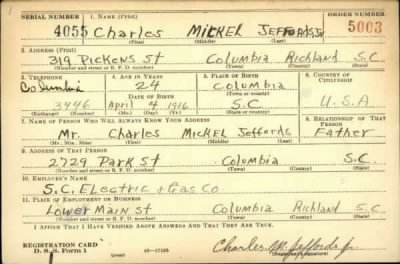 SERIAL NUMBER 1. NAME (Print) ORDER NUMBER
4055 Charles MICKEL Jeffords Jr 5003
(First) (Middle) (Last)
2. ADDRESS (Print)
319 Pickens St Columbia Richland S.C.
(Number and street or R. F. D. number) (Town) (County) (State)
3. TELEPHONE 4. AGE IN YEARS 5. PLACE OF BIRTH 6. COUNTRY OF CITIZENSHIP
Columbia 24 Columbia
DATE OF BIRTH (Town or county)
3446 April 4 1916 S.C U.S.A
(Exchange) (Number) (Mo.) (Day) (Yr.) (State or country)
7. NAME OF PERSON WHO WILL ALWAYS KNOW YOUR ADDRESS 8. RELATIONSHIP OF THAT PERSON
Mr. Charles Mickel Jeffords Father
(Mr., Mrs., Miss) (First) (Middle) (Last)
9. ADDRESS OF THAT PERSON
2729 Park St Columbia S.C.
(Number and street or R. F. D. number) (Town) (County) (State)
10. EMPLOYER'S NAME
S.C. Electric & Gas Co
11. PLACE OF EMPLOYMENT OR BUSINESS
Lower Main St Columbia Richland S.C.
(Number and street or R. F. D. number) (Town) (County) (State)
I AFFIRM THAT I HAVE VERIFIED ABOVE ANSWERS AND THAT THEY ARE TRUE.
REGISTRATION CARD
D. S. S. Form 1 16—17105 Charles M. Jeffords Jr.
(Registrant's signature)